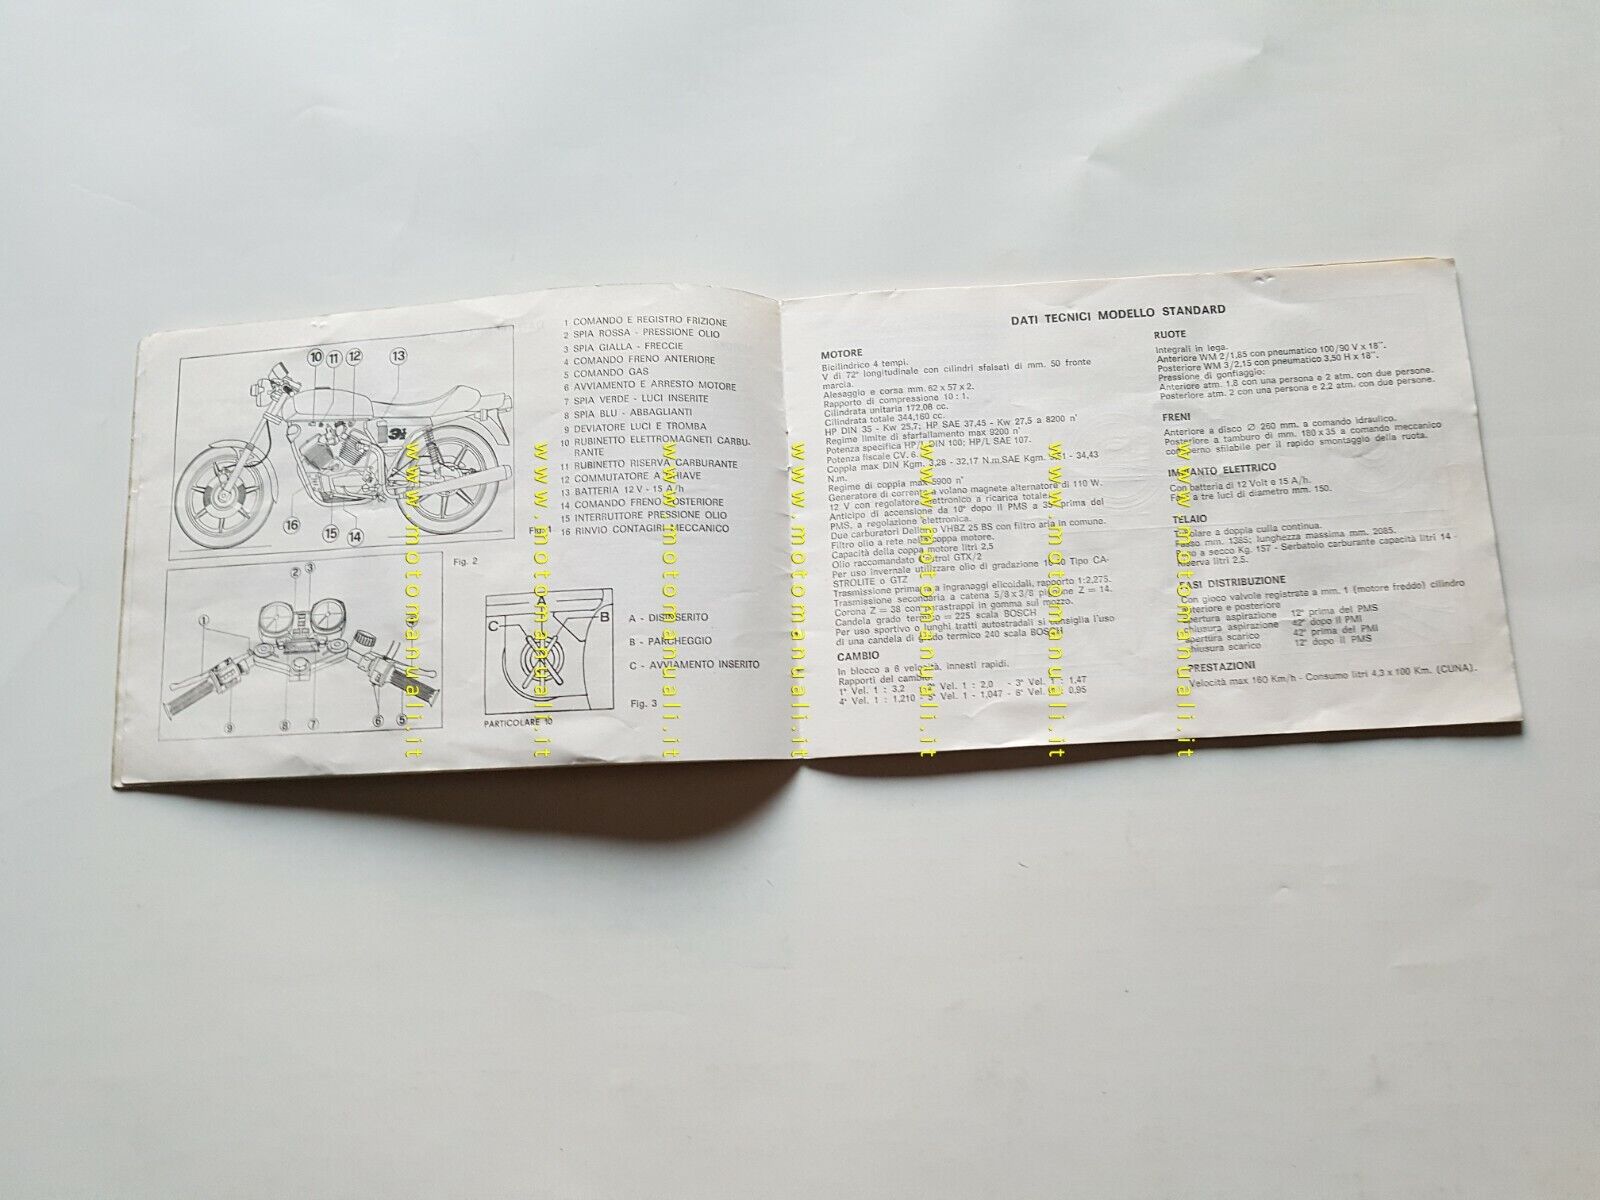 1 COMANDO E REGISTRO FRIZIONE
2 SPIA ROSSA - PRESSIONE OLIO
3 SPIA GIALLA - FRECCIE
4 COMANDO FRENO ANTERIORE
5 COMANDO GAS
6 AVVIAMENTO E ARRESTO MOTORE
7 SPIA VERDE - LUCI INSERITE
8 SPIA BLU - ABBAGLIANTI
9 DEVIATORE LUCI E TROMBA
10 RUBINETTO ELETTROMAGNETI CARBU-
RANTE
11 RUBINETTO RISERVA CARBURANTE
12 COMMUTATORE A CHIAVE
13 BATTERIA 12 V - 15 A/h
14 COMANDO FRENO POSTERIORE
15 INTERRUTTORE PRESSIONE OLIO
16 RINVIO CONTAGIRI MECCANICO
10 11 12 13
3½
16 15 14
Fig. 1
Fig. 2
2 3
1
9 8 7 6 5
A
B
C
A - DISINSERITO
B - PARCHEGGIO
C - AVVIAMENTO INSERITO
Fig. 3
PARTICOLARE 10
DATI TECNICI MODELLO STANDARD
MOTORE
Bicilindrico 4 tempi.
V di 72° longitudinale con cilindri sfalsati di mm. 50 fronte
marcia.
Alesaggio e corsa mm. 62 x 57 x 2.
Rapporto di compressione 10 : 1.
Cilindrata unitaria 172,08 cc.
Cilindrata totale 344,160 cc.
HP DIN 35 - Kw 25,7; HP SAE 37,45 - Kw 27,5 a 8200 n'
Regime limite di sfarfallamento max 9200 n'
Potenza specifica HP/L DIN 100; HP/L SAE 107.
Potenza fiscale CV. 6.
Coppia max DIN Kgm. 3,28 - 32,17 N.m. SAE Kgm. - 34,43
N.m.
Regime di coppia max 5900 n'
Generatore di corrente a volano magnete alternatore di 110 W.
12 V con regolatore elettronico a ricarica totale.
Anticipo di accensione da 10° dopo il PMS a 35° prima del
PMS, a regolazione elettronica.
Due carburatori Dellorto VHBZ 25 BS con filtro aria in comune.
Filtro olio a rete nella coppa motore.
Capacità della coppa motore litri 2,5
Olio raccomandato GTX/2
Per uso invernale utilizzare olio di gradazione Tipo CA-
STROLITE o GTZ
Trasmissione primaria a ingranaggi elicoidali, rapporto 1:2,275.
Trasmissione secondaria a catena 5/8 x 3/8 pignone Z = 14.
Corona Z = 38 con parastrappi in gomma sul mozzo.
Candela grado termico = 225 scala BOSCH
Per uso sportivo o lunghi tratti autostradali si consiglia l'uso
di una candela di grado termico 240 scala BOSCH
CAMBIO
In blocco a 6 velocità, innesti rapidi.
Rapporti del cambio:
1° Vel. 1 : 3,2 - 2° Vel. 1 : 2,0 - 3° Vel. 1 : 1,47
4° Vel. 1 : 1,210 - 5° Vel. 1 - 1,047 - 6° Vel. 0,95
RUOTE
Integrali in lega.
Anteriore WM 2/1,85 con pneumatico 100/90 V x 18".
Posteriore WM 3/2,15 con pneumatico 3,50 H x 18".
Pressione di gonfiaggio:
Anteriore atm. 1,8 con una persona e 2 atm. con due persone.
Posteriore atm. 2 con una persona e 2,2 atm. con due persone.
FRENI
Anteriore a disco Ø 260 mm. a comando idraulico.
Posteriore a tamburo di mm. 180 x 35 a comando meccanico
con perno sfilabile per il rapido smontaggio della ruota.
IMPIANTO ELETTRICO
Con batteria di 12 Volt e 15 A/h.
Faro a tre luci di diametro mm. 150.
TELAIO
Tubolare a doppia culla continua.
Passo mm. 1385; lunghezza massima mm. 2085.
Peso a secco Kg. 157 - Serbatoio carburante capacità litri 14 -
Riserva litri 2,5.
FASI DISTRIBUZIONE
Con gioco valvole registrate a mm. 1 (motore freddo) cilindro
anteriore e posteriore
apertura aspirazione 12° prima del PMS
chiusura aspirazione 42° dopo il PMI
apertura scarico 42° prima del PMI
chiusura scarico 12° dopo il PMS
PRESTAZIONI
Velocità max 160 Km/h - Consumo litri 4,3 x 100 Km. (CUNA).
www.motomanuali.it
www.motomanuali.it
www.motomanuali.it
www.motomanuali.it
www.motomanuali.it
www.motomanuali.it
www.motomanuali.it